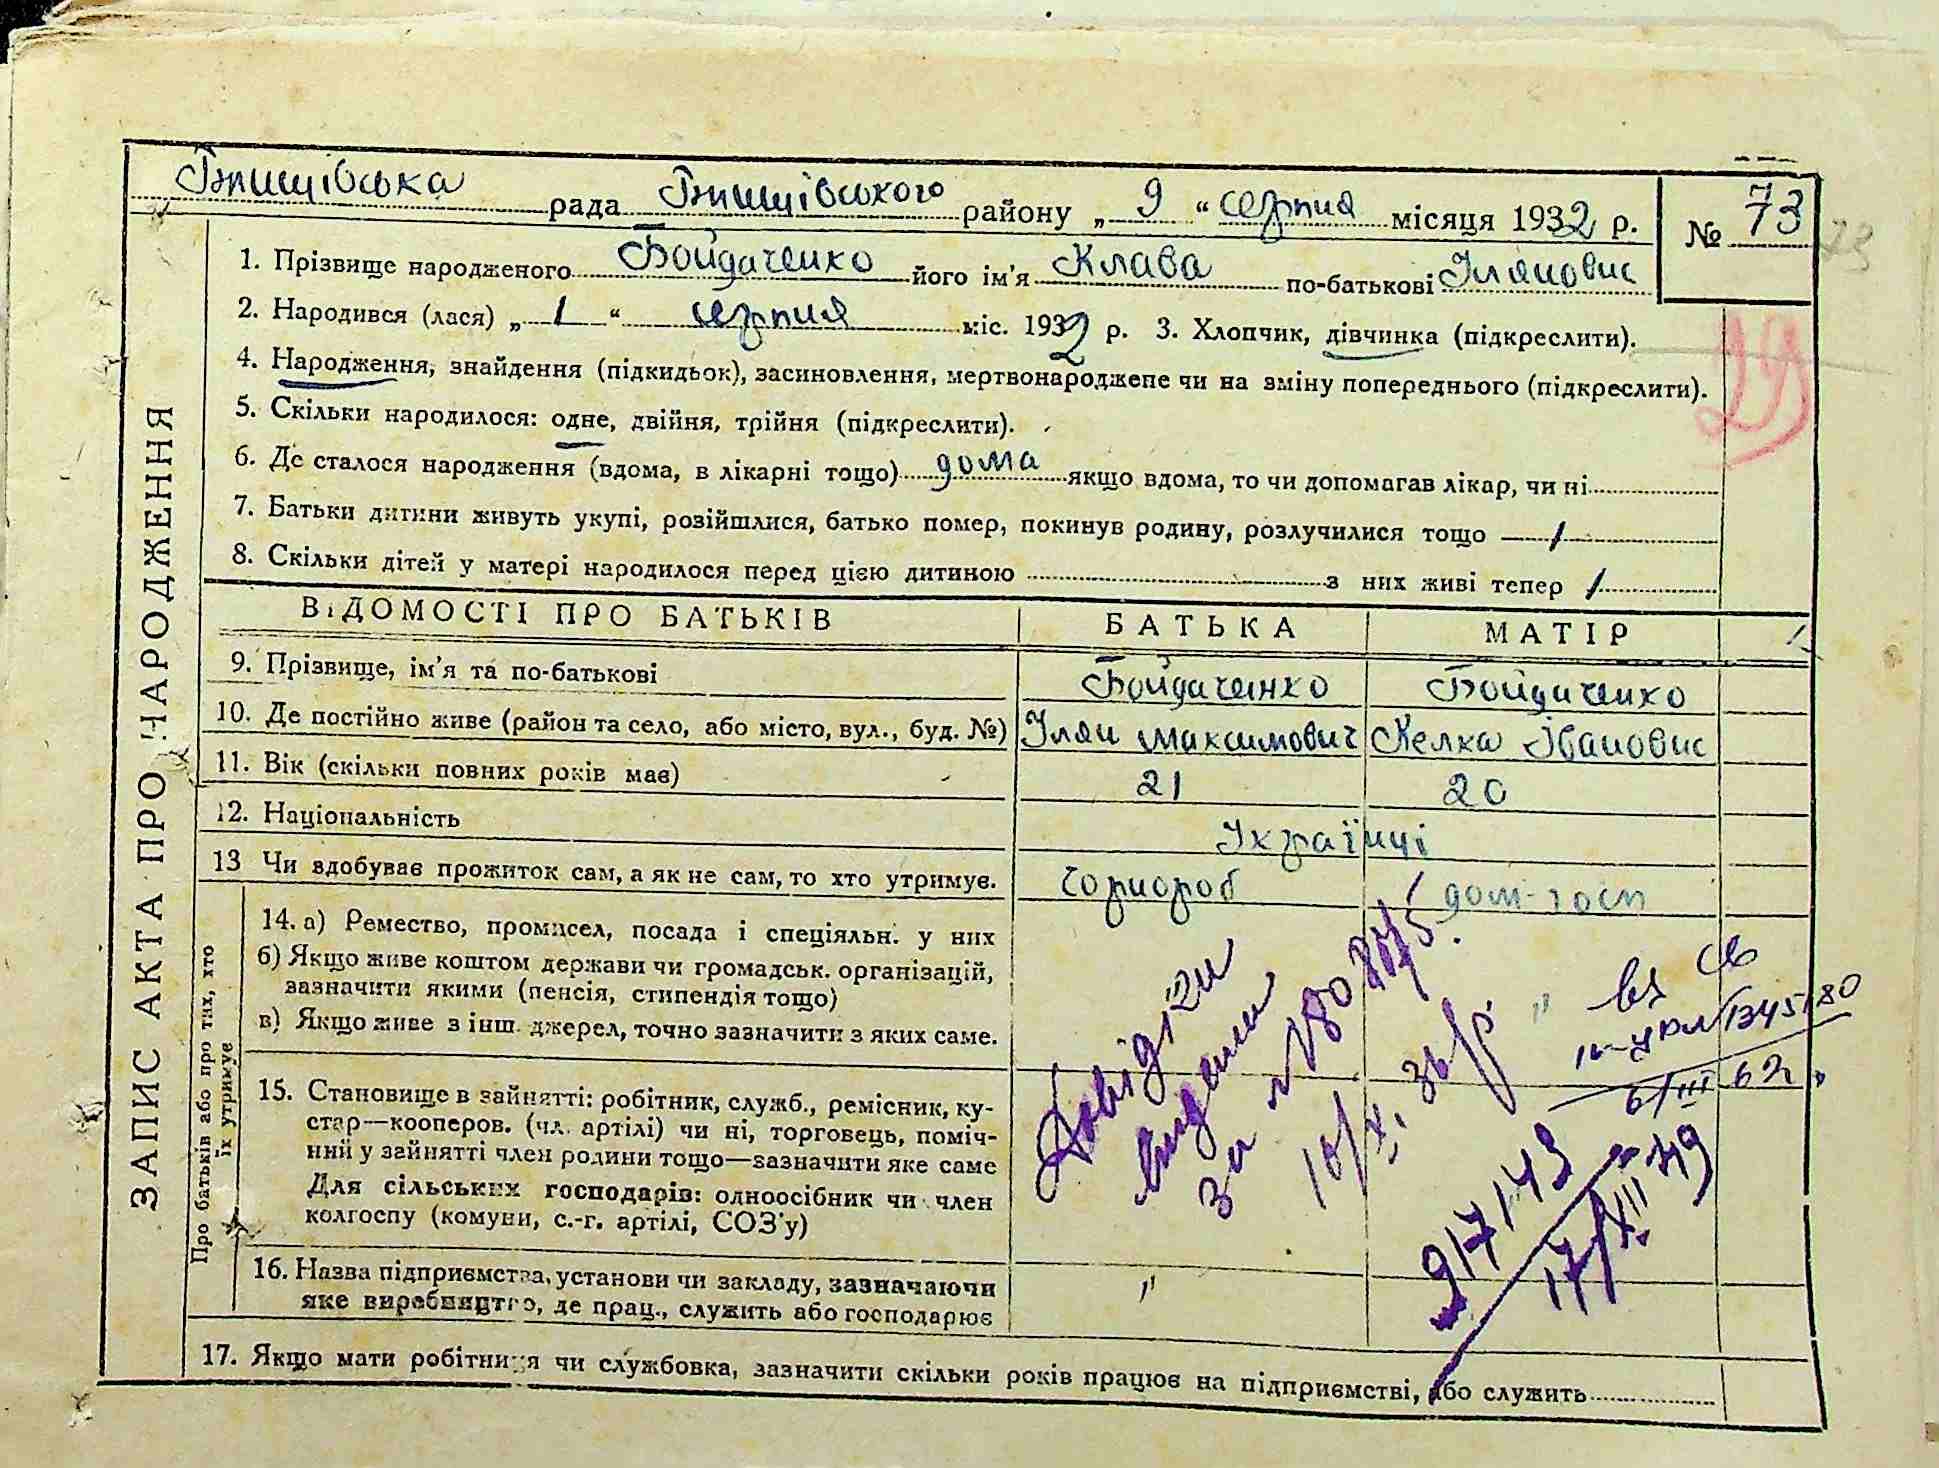 рада району „ 9 “ серпня місяця 1932 р. № 73
73
1. Прізвище народженого Бойдаченко його ім'я Клава по-батькові Ілянович
2. Народився (лася) „ 1 “ серпня міс. 1932 р. 3. Хлопчик, дівчинка (підкреслити).
29
4. Народження, знайдення (підкидьок), засиновлення, мертвонароджене чи на зміну попереднього (підкреслити).
5. Скільки народилося: одне, двійня, трійня (підкреслити).
6. Де сталося народження (вдома, в лікарні тощо) дома якщо вдома, то чи допомагав лікар, чи ні
7. Батьки дитини живуть укупі, розійшлися, батько помер, покинув родину, розлучилися тощо — /
8. Скільки дітей у матері народилося перед цією дитиною з них живі тепер /
ЗАПИС АКТА ПРО НАРОДЖЕННЯ
ВІДОМОСТІ ПРО БАТЬКІВ БАТЬКА МАТІР
9. Прізвище, ім'я та по-батькові Бойдаченко Бойдаченко
10. Де постійно живе (район та село, або місто, вул., буд. №) Ілян Максимович Келка Іванович
11. Вік (скільки повних років має) 21 20
12. Національність Українці
13 Чи вдобуває прожиток сам, а як не сам, то хто утримує. дом-госп
Про батьків або про тих, хто їх утримує
14. а) Ремество, промисел, посада і спеціяльн. у них
б) Якщо живе коштом держави чи громадськ. організацій,
зазначити якими (пенсія, стипендія тощо)
в) Якщо живе з інш. джерел, точно зазначити з яких саме.
15. Становище в зайнятті: робітник, служб., ремісник, ку-
стар—кооперов. (чл. артілі) чи ні, торговець, поміч-
ний у зайнятті член родини тощо—зазначити яке саме
Для сільських господарів: одноосібник чи член
колгоспу (комуни, с.-г. артілі, СОЗ'у)
16. Назва підприємства, установи чи закладу, зазначаючи
яке виробництво, де прац., служить або господарює "
17. Якщо мати робітниця чи службовка, зазначити скільки років працює на підприємстві, або служить
Довідки
видании
за № 180 80/5.
10/XI, 36 р.
6/III 62
917143
17/XII 49